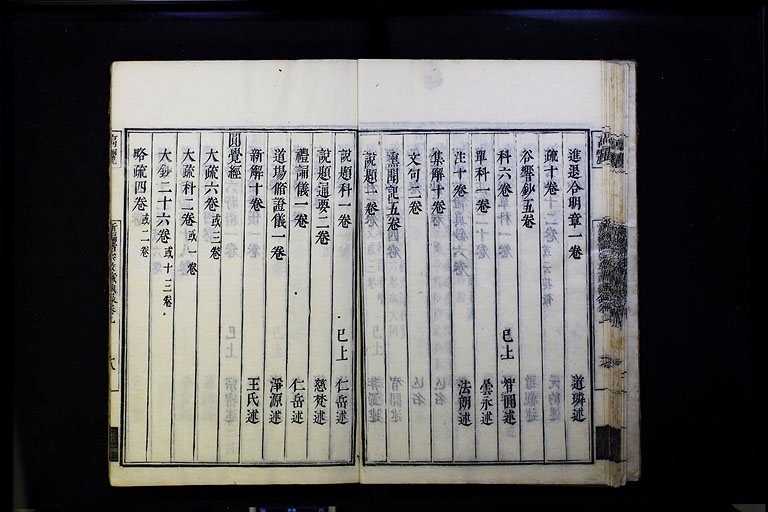 進退合明章一卷 道璘述
疏十卷十二卷
谷響鈔五卷
科六卷 已上 智圓述
單科一卷 雲永述
注十卷 法朗述
集解十卷
文句二卷
熏聞記五卷
說題一卷
說題科一卷 已上 仁岳述
說題通要二卷 慈梵述
禮誦儀一卷 仁岳述
道場脩證儀一卷 淨源述
新解十卷 王氏述
圓覺經
大疏六卷或三卷
大疏科二卷或一卷
大鈔二十六卷或十三卷
略疏四卷或二卷